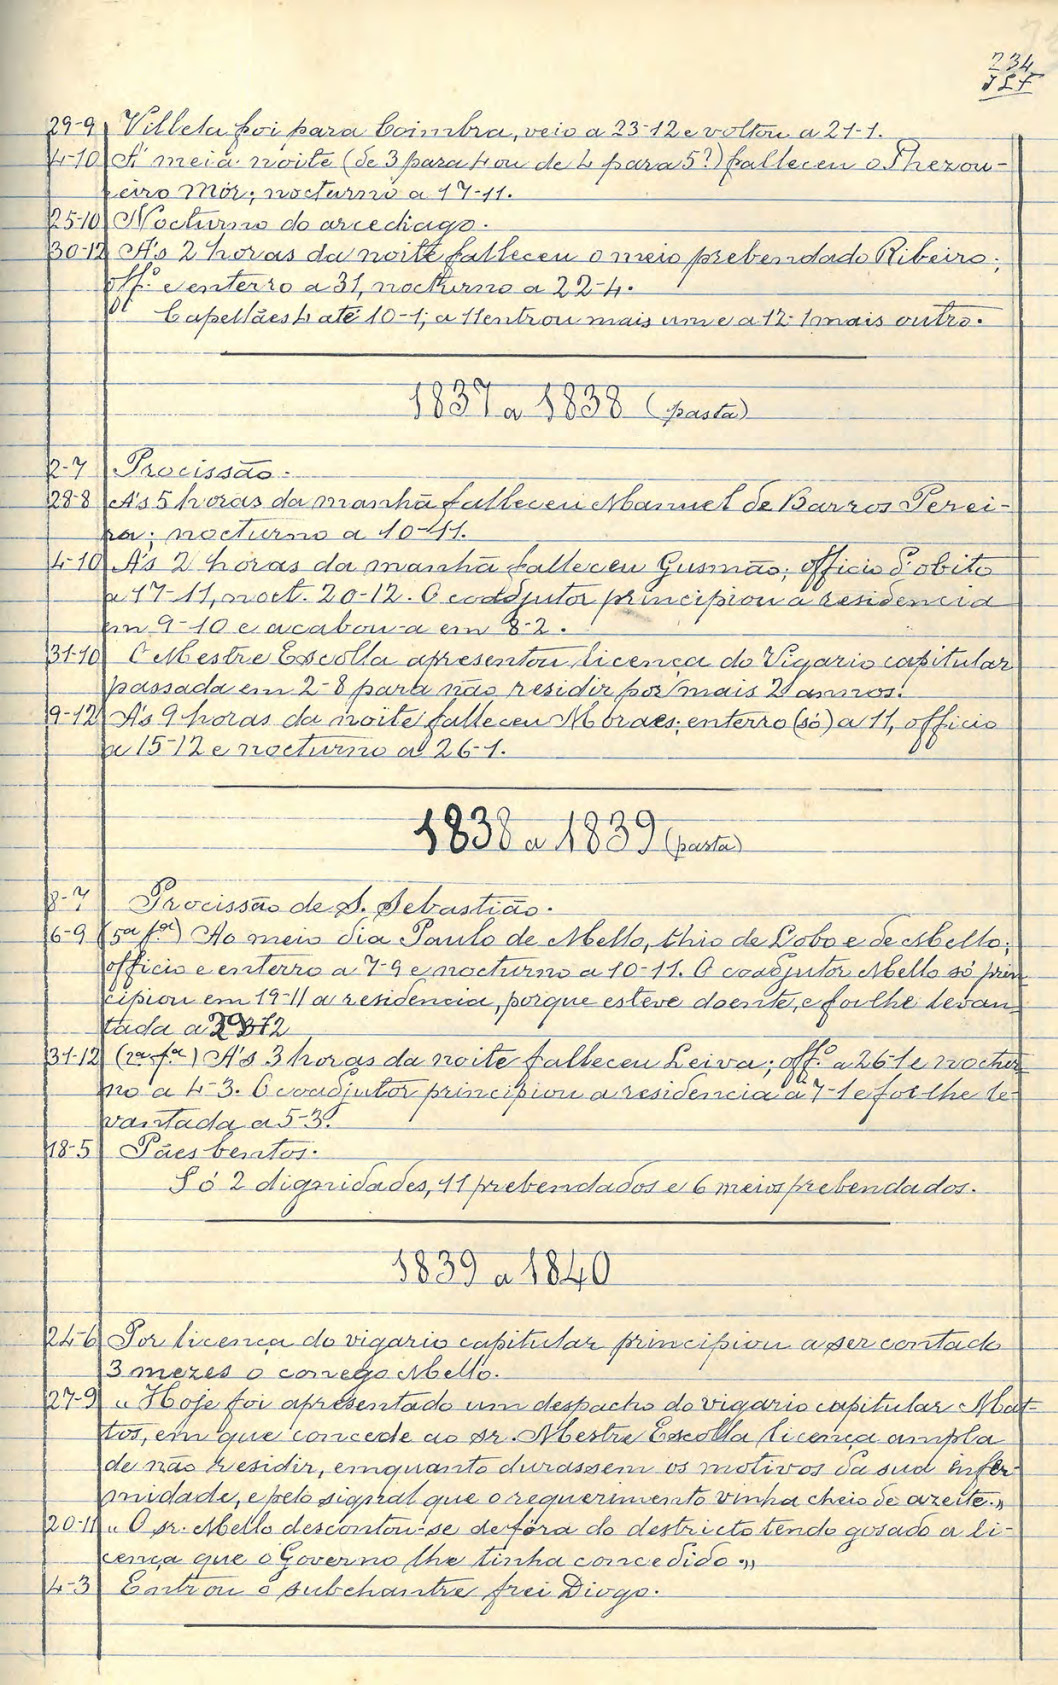 234
29-9 Villela foi para Coimbra, veio a 23-12 e voltou a 21-1.
4-10 A' meia noite (de 3 para 4 ou de 4 para 5?) falleceu o Thezou-
reiro Mór; nocturno a 17-11.
25-10 Nocturno do arcediago.
30-12 A's 2 horas da noite falleceu o meio prebendado Ribeiro;
off.º e enterro a 31, nocturno a 22-4.
Capellães 4 até 10-1; a 11 entrou mais um e a 12-1 mais outro.
1837 a 1838 (pasta)
2-7 Procissão.
28-8 A's 5 horas da manhã falleceu Manuel de Barros Perei-
ra; nocturno a 10-11.
4-10 A's 2 horas da manhã falleceu Gusmão; officio d'obito
a 17-11, noct. 20-12. O coadjutor principiou a residencia
em 9-10 e acabou-a em 8-2.
31-10 O Mestre Escolla apresentou licença do Vigario capitular
passada em 2-8 para não residir por mais 2 annos.
9-12 A's 9 horas da noite falleceu Moraes; enterro (só) a 11, officio
a 15-12 e nocturno a 26-1.
1838 a 1839 (pasta)
8-7 Procissão de S. Sebastião.
6-9 (5ª fª) Ao meio dia Paulo de Mello, thio de Lobo e de Mello;
officio e enterro a 7-9 e nocturno a 10-11. O coadjutor Mello só prin
cipiou em 19-11 a residencia, porque esteve doente, e foi-lhe levan
tada a
31-12 (2ª fª) A's 3 horas da noite falleceu Leiva; off.º a 26-1 e noctur
no a 4-3. O coadjutor principiou a residencia a 7-1 e foi-lhe le-
vantada a 5-3.
18-5 Pães bentos.
Só 2 dignidades, 11 prebendados e 6 meios prebendados.
1839 a 1840
24-6 Por licença do vigario capitular principiou a ser contado
3 mezes o conego Mello.
27-9 "Hoje foi apresentado um despacho do vigario capitular Mat-
tos, em que concede ao sr. Mestre Escolla licença ampla
de não residir, emquanto durassem os motivos da sua enfer-
midade, e pelo signal que o requerimento vinha cheio de azeite."
20-11 "O sr. Mello descontou-se de fóra do destricto tendo gosado a li-
cença que o Governo lhe tinha concedido."
4-3 Entrou o subchantre frei Diogo.